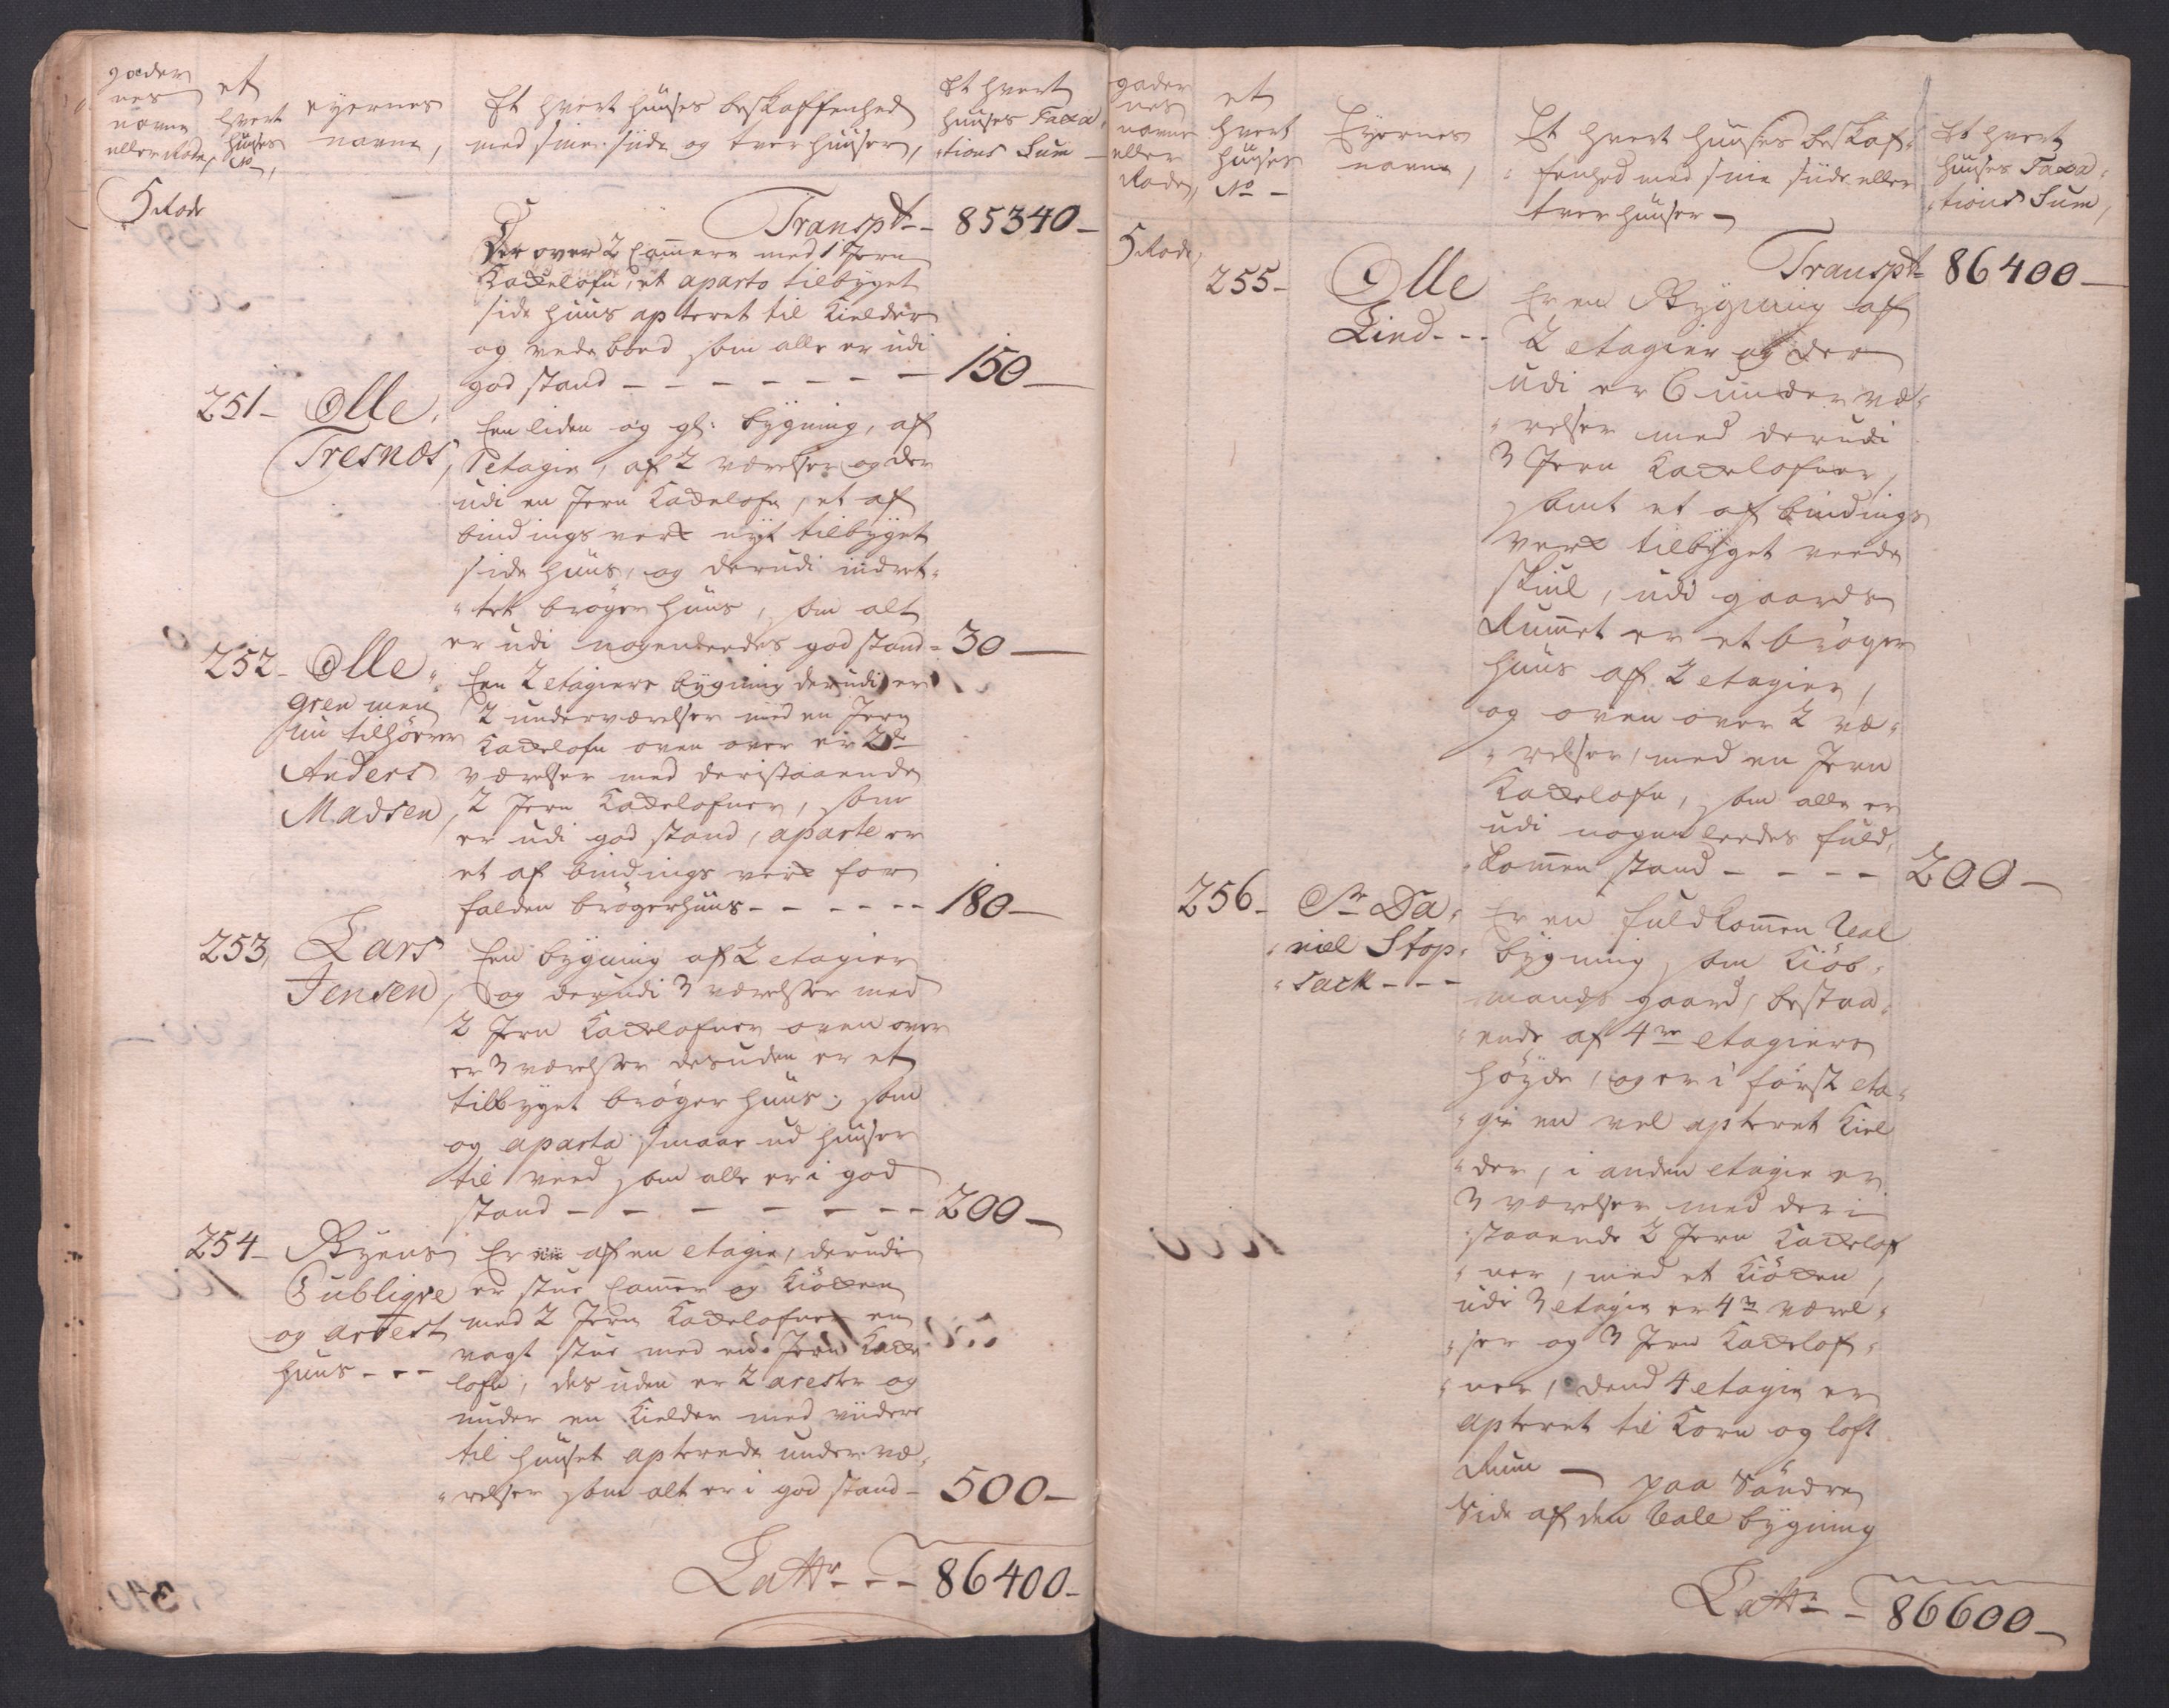 gader
nes
navne
eller Rode,
et
hvert
huuses
No
eyernes
navne,
Et hvert huuses beskaffenhed
med sine side og tverhuuser,
Et hvert
huuses Taxa
tions Sum
5 Rode
Transpt - 85340 -
Der over 2 Camere med 1 Jern
Kackelofn, et aparte tilbyget
side huus apteret til Kielder
og vede bod som alle er udi
god stand - - - - - - - 150 -
251 - Olle
Tresnæs,
Een liden og gl: bygning, af
1 etagie, af 2 værelser og der
udi en Jern Kackelofn, et af
bindingsverk nyt tilbyget
side huus, og derudi indret-
tet brøgerhuus, som alt
er udi nogenleedes god stand - 30 -
252 - Olle
gren men
nu tilhører
Anders
Madsen,
Een 2 etagiers bygning derudi er
2 underværelser med en Jern
Kackelofn oven over er 2de
værelser med deristaaende
2 Jern Kackelofner, som
er udi god stand, aparte er
et af bindings verk for
falden brøgerhuus - - - - - 180 -
253, Lars
Jensen,
Een bygning af 2 etagier
og derudi 3 værelser med
2 Jern Kackelofner oven over
er 3 værelser desuden er et
tilbyget brøger huus, som
og aparta smaae ud huuser
til veed som alle er i god
stand - - - - - - - 200 -
254 - Byens
Publiqve
og arrest
huus - - -
Er af en etagie, derudi
er stue Camer og Kiöcken
med 2 Jern Kackelofner en
vagt stue med en Jern Kacke
lofn, desuden er 2 arester og
under en Kielder med viidere
til huuset apterede under væ-
relser som alt er i god stand - 500 -
Latr - - - 86400 -
gader
nes
navne
eller
Rode,
et
hvert
huuses
No -
Eyernes
navne,
Et hvert huuses beskaf-
fenhed med sine side eller
tverhuuser -
Et hvert
huuses Taxa-
tions Sum,
5 Rode,
Transpt - 86400 -
255 - Olle
Lind - - -
Er en Bygning af
2 etagier og der
udi er 6 under væ-
relser med derudi
3 Jern Kackelofner,
samt et af bindings
verk tilbyget veede
skiul, udi gaards
Rummet er et brøger
huus af 2 etagier,
og oven over 2 væ-
relser, med en Jern
Kackelofn, som alle er
udi nogenleedes fuld
kommen stand - - - - 200 -
256 - Sr Da
niel Stop
sack - - -
Er en fuldkommen Val
bygning som Kiöb-
mands gaard, bestaa-
ende af 4re etagiers
höyde, og er i först eta-
gie en vel apteret Kiel
der, i anden etagie er
3 værelser med der i
staaende 2 Jern Kackelof
ner, med et Kiöcken,
udi 3 etagie er 4re værel-
ser og 3 Jern Kackelof-
ner, dend 4 etagie er
apteret til Korn og loft
Rum - paa Söndre
Side af den Vale bygning
Latr - - 86600 -